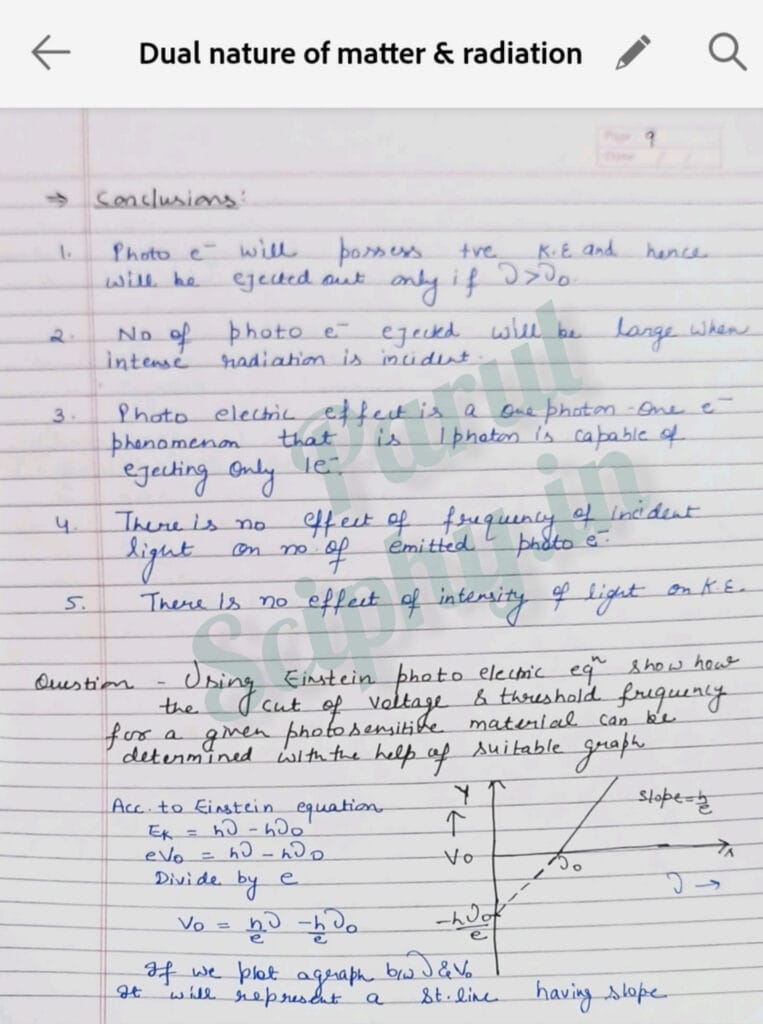 Dual nature of matter & radiation
Page 9
Date / /
→ Conclusions:
1. Photo e⁻ will possess +ve K.E and hence
will be ejected out only if ν>ν₀.
2. No of photo e⁻ ejected will be large when
intense radiation is incident.
3. Photo electric effect is a one photon-one e⁻
phenomenon that is 1 photon is capable of
ejecting only 1e⁻.
4. There is no effect of frequency of incident
light on no. of emitted photo e⁻.
5. There is no effect of intensity of light on K.E.
Parul
Sciphy.in
Question - Using Einstein photo electric eqⁿ show how
the cut of voltage & threshold frequency
for a given photosensitive material can be
determined with the help of suitable graph
Acc. to Einstein equation
Eₖ = hν - hν₀
eV₀ = hν - hν₀
Divide by e
V₀ = h/e ν - h/e ν₀
Y
↑
V₀
slope = h/e
ν₀
ν →
-hν₀/e
If we plot a graph b/w ν & V₀
It will represent a st. line having slope